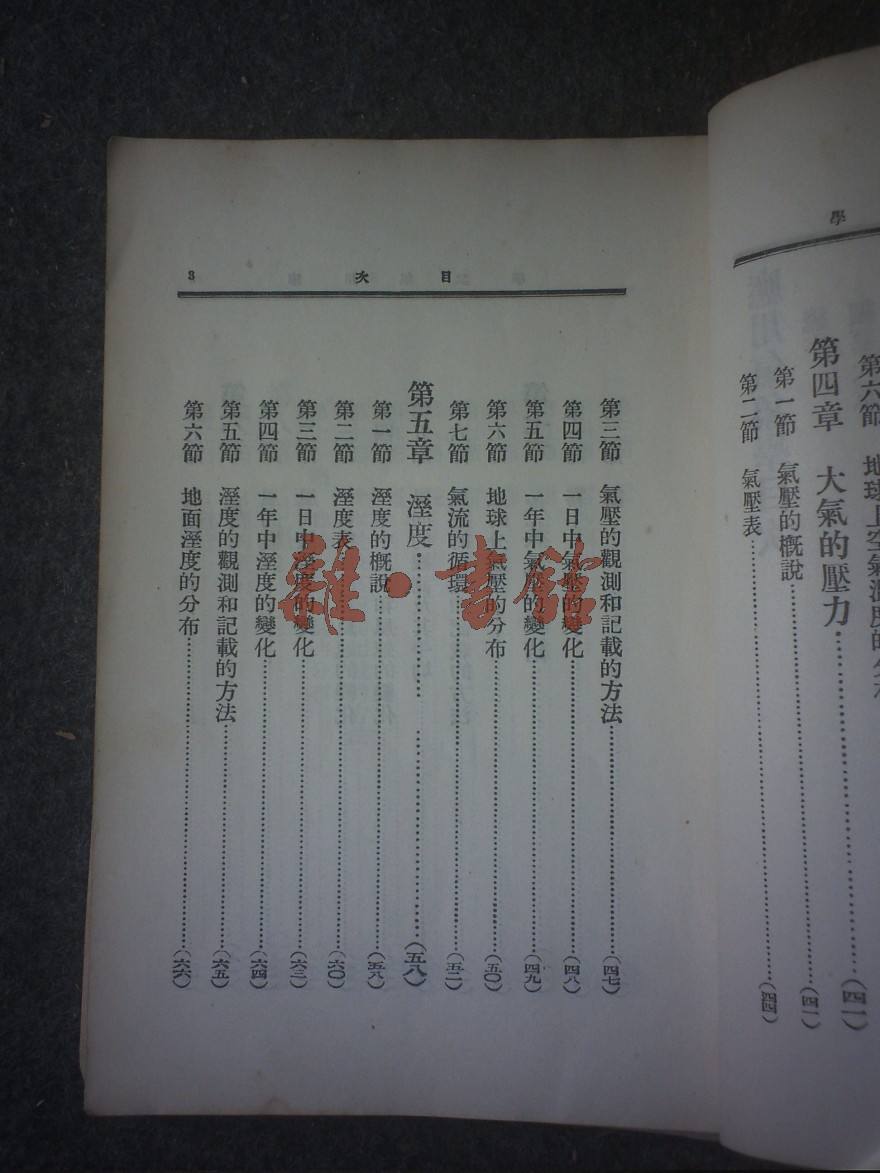 學
第六節 地球上空氣溫度的分
第四章 大氣的壓力…………(四一)
第一節 氣壓的概說…………(四一)
第二節 氣壓表…………(四四)
目次 3
第三節 氣壓的觀測和記載的方法…………(四七)
第四節 一日中氣壓的變化…………(四八)
第五節 一年中氣壓的變化…………(四九)
第六節 地球上氣壓的分布…………(五〇)
第七節 氣流的循環…………(五二)
第五章 溼度…………(五八)
第一節 溼度的概說…………(五八)
第二節 溼度表…………(六〇)
第三節 一日中溼度的變化…………(六三)
第四節 一年中溼度的變化…………(六四)
第五節 溼度的觀測和記載的方法…………(六五)
第六節 地面溼度的分布…………(六六)
雜·書館